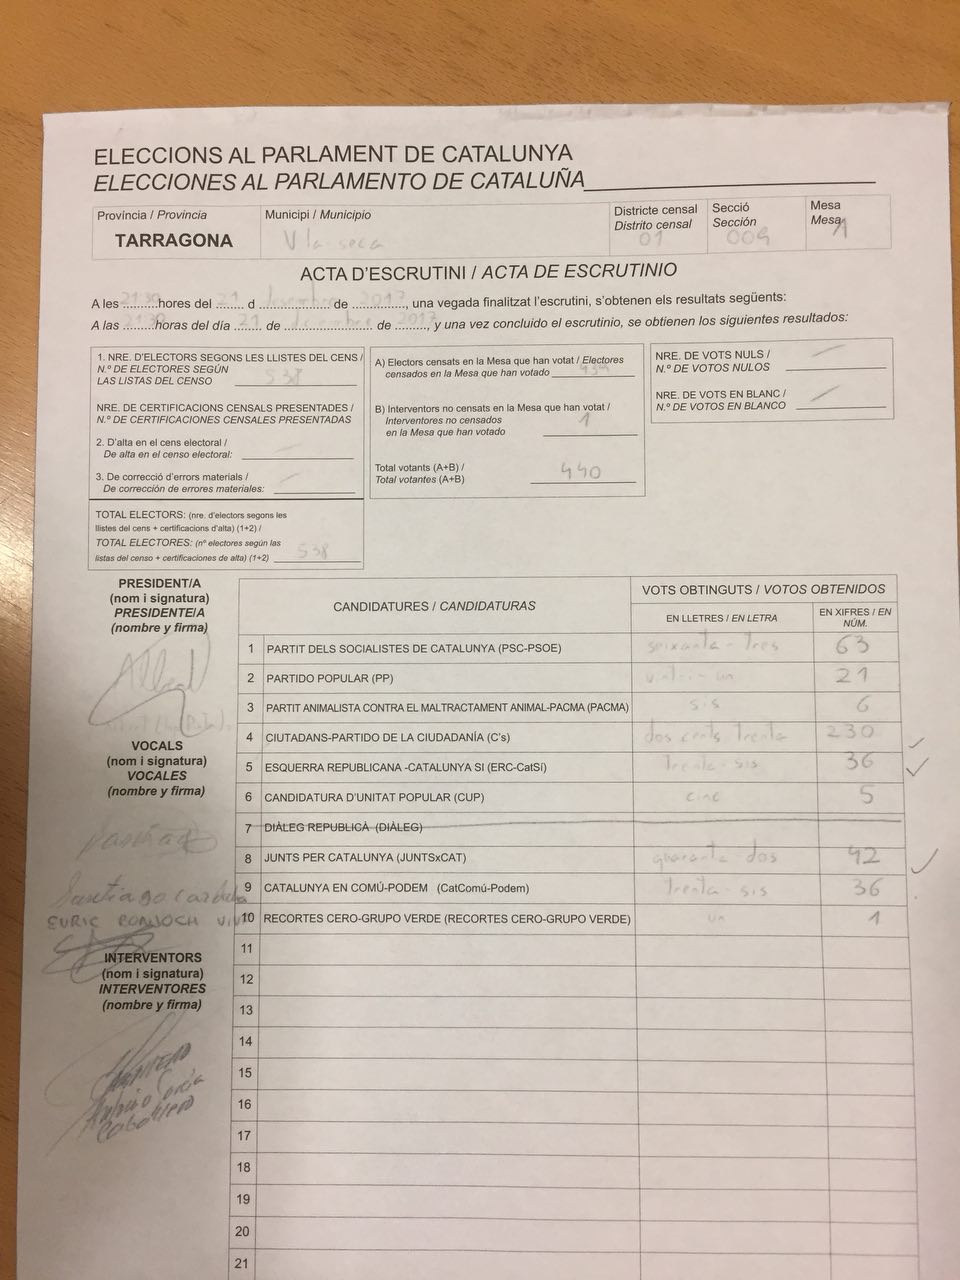 ELECCIONS AL PARLAMENT DE CATALUNYA
ELECCIONES AL PARLAMENTO DE CATALUÑA
Província / Provincia
TARRAGONA
Municipi / Municipio
Vila-seca
Districte censal
Distrito censal
01
Secció
Sección
009
Mesa
Mesa
1
ACTA D'ESCRUTINI / ACTA DE ESCRUTINIO
A les 21:30 hores del 21 d desembre de 2017, una vegada finalitzat l'escrutini, s'obtenen els resultats següents:
A las 21:30 horas del día 21 de diciembre de 2017, y una vez concluido el escrutinio, se obtienen los siguientes resultados:
1. NRE. D'ELECTORS SEGONS LES LLISTES DEL CENS /
N.º DE ELECTORES SEGÚN
LAS LISTAS DEL CENSO 538
NRE. DE CERTIFICACIONS CENSALS PRESENTADES /
N.º DE CERTIFICACIONES CENSALES PRESENTADAS
2. D'alta en el cens electoral /
De alta en el censo electoral:
3. De correcció d'errors materials /
De corrección de errores materiales:
TOTAL ELECTORS: (nre. d'electors segons les
llistes del cens + certificacions d'alta) (1+2) /
TOTAL ELECTORES: (nº electores según las
listas del censo + certificaciones de alta) (1+2) 538
A) Electors censats en la Mesa que han votat / Electores
censados en la Mesa que han votado 439
B) Interventors no censats en la Mesa que han votat /
Interventores no censados
en la Mesa que han votado 1
Total votants (A+B) /
Total votantes (A+B) 440
NRE. DE VOTS NULS /
N.º DE VOTOS NULOS
NRE. DE VOTS EN BLANC /
N.º DE VOTOS EN BLANCO
PRESIDENT/A
(nom i signatura)
PRESIDENTE/A
(nombre y firma)
VOCALS
(nom i signatura)
VOCALES
(nombre y firma)
Santiago
INTERVENTORS
(nom i signatura)
INTERVENTORES
(nombre y firma)
CANDIDATURES / CANDIDATURAS
VOTS OBTINGUTS / VOTOS OBTENIDOS
EN LLETRES / EN LETRA
EN XIFRES / EN NÚM.
1 PARTIT DELS SOCIALISTES DE CATALUNYA (PSC-PSOE) seixanta-tres 63
2 PARTIDO POPULAR (PP) vint-i-un 21
3 PARTIT ANIMALISTA CONTRA EL MALTRACTAMENT ANIMAL-PACMA (PACMA) sis 6
4 CIUTADANS-PARTIDO DE LA CIUDADANÍA (C's) dos cents trenta 230
5 ESQUERRA REPUBLICANA -CATALUNYA SI (ERC-CatSí) Trenta-sis 36
6 CANDIDATURA D'UNITAT POPULAR (CUP) cinc 5
7 DIÀLEG REPUBLICÀ (DIÀLEG)
8 JUNTS PER CATALUNYA (JUNTSxCAT) quaranta-dos 42
9 CATALUNYA EN COMÚ-PODEM (CatComú-Podem) Trenta-sis 36
10 RECORTES CERO-GRUPO VERDE (RECORTES CERO-GRUPO VERDE) un 1
11
12
13
14
15
16
17
18
19
20
21